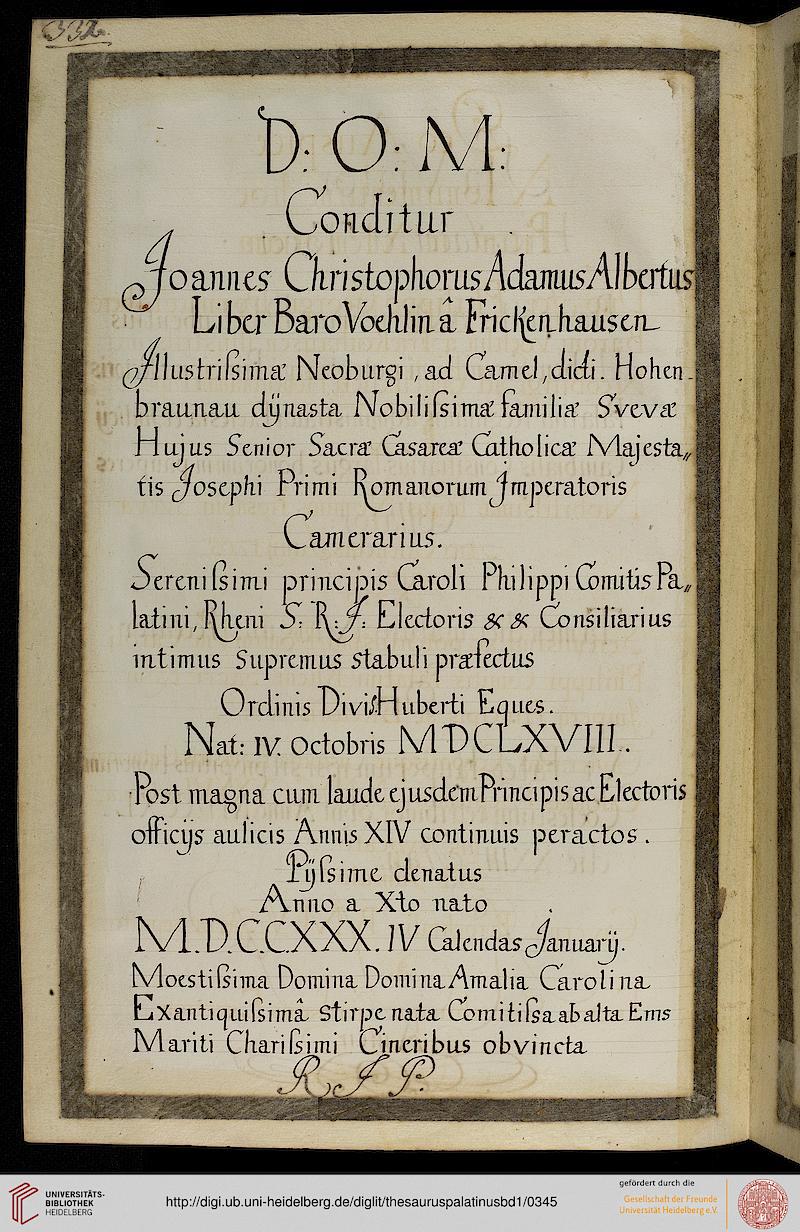 332.
D: O: M:
Conditur
Joannes Christophorus Adamus Albertus
Liber Baro Voehlin â Frickenhausen
Illustriſsimæ Neoburgi, ad Camel, didi. Hohen-
braunau dÿnasta Nobiliſsimæ familiæ Svevæ
Hujus Senior Sacræ Cæsareæ Catholicæ Majesta„
tis Josephi Primi Romanorum Imperatoris
Camerarius.
Sereniſsimi principis Caroli Philippi Comitis Pa„
latini, Rheni S: R: J: Electoris & & Consiliarius
intimus supremus stabuli præfectus
Ordinis Divi Huberti Eques.
Nat: IV. Octobris MDCLXVIII.
Post magna cum laude ejusdem Principis ac Electoris
officÿs aulicis Annis XIV continuis peractos.
Pÿſsime denatus
Anno a Xto nato
M.D.C.CXXX. IV Calendas Januarÿ.
Moestiſsima Domina Domina Amalia Carolina
Ex antiquiſsimâ stirpe nata Comitiſsa ab alta Ems
Mariti Chariſsimi Cineribus obvincta
R J P.
UNIVERSITÄTS-
BIBLIOTHEK
HEIDELBERG
http://digi.ub.uni-heidelberg.de/diglit/thesauruspalatinusbd1/0345
gefördert durch die
Gesellschaft der Freunde
Universität Heidelberg e.V.